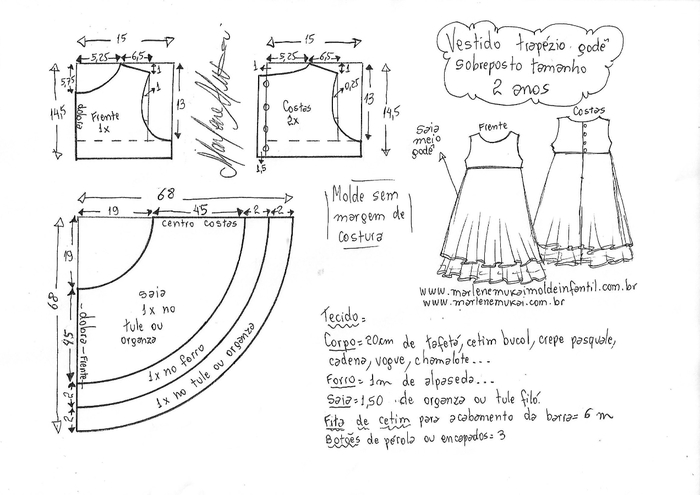 15
5,25
6,5
1
1
5,75
14,5
13
dobra
Frente
1x
15
1
5,25
6,5
1
0,25
13
14,5
Costas
2x
1,5
Vestido trapézio godê
sobreposto tamanho
2 anos
Saia
meio
godê
Frente
Costas
68
19
45
2
2
centro costas
19
68
45
2
2
dobra-Frente
saia
1x no
tule ou
organza
1x no forro
1x no tule ou organza
Molde sem
margem de
costura
www.marlenemukaimoldeinfantil.com.br
www.marlenemukai.com.br
Tecido=
Corpo=20cm de tafetá, cetim bucol, crepe pasquale,
cadena, vogue, chamalote...
Forro= 1m de alpaseda...
Saia=1,50 de organza ou tule filó.
Fita de cetim para acabamento da barra= 6 m
Botões de pérola ou encapados= 3